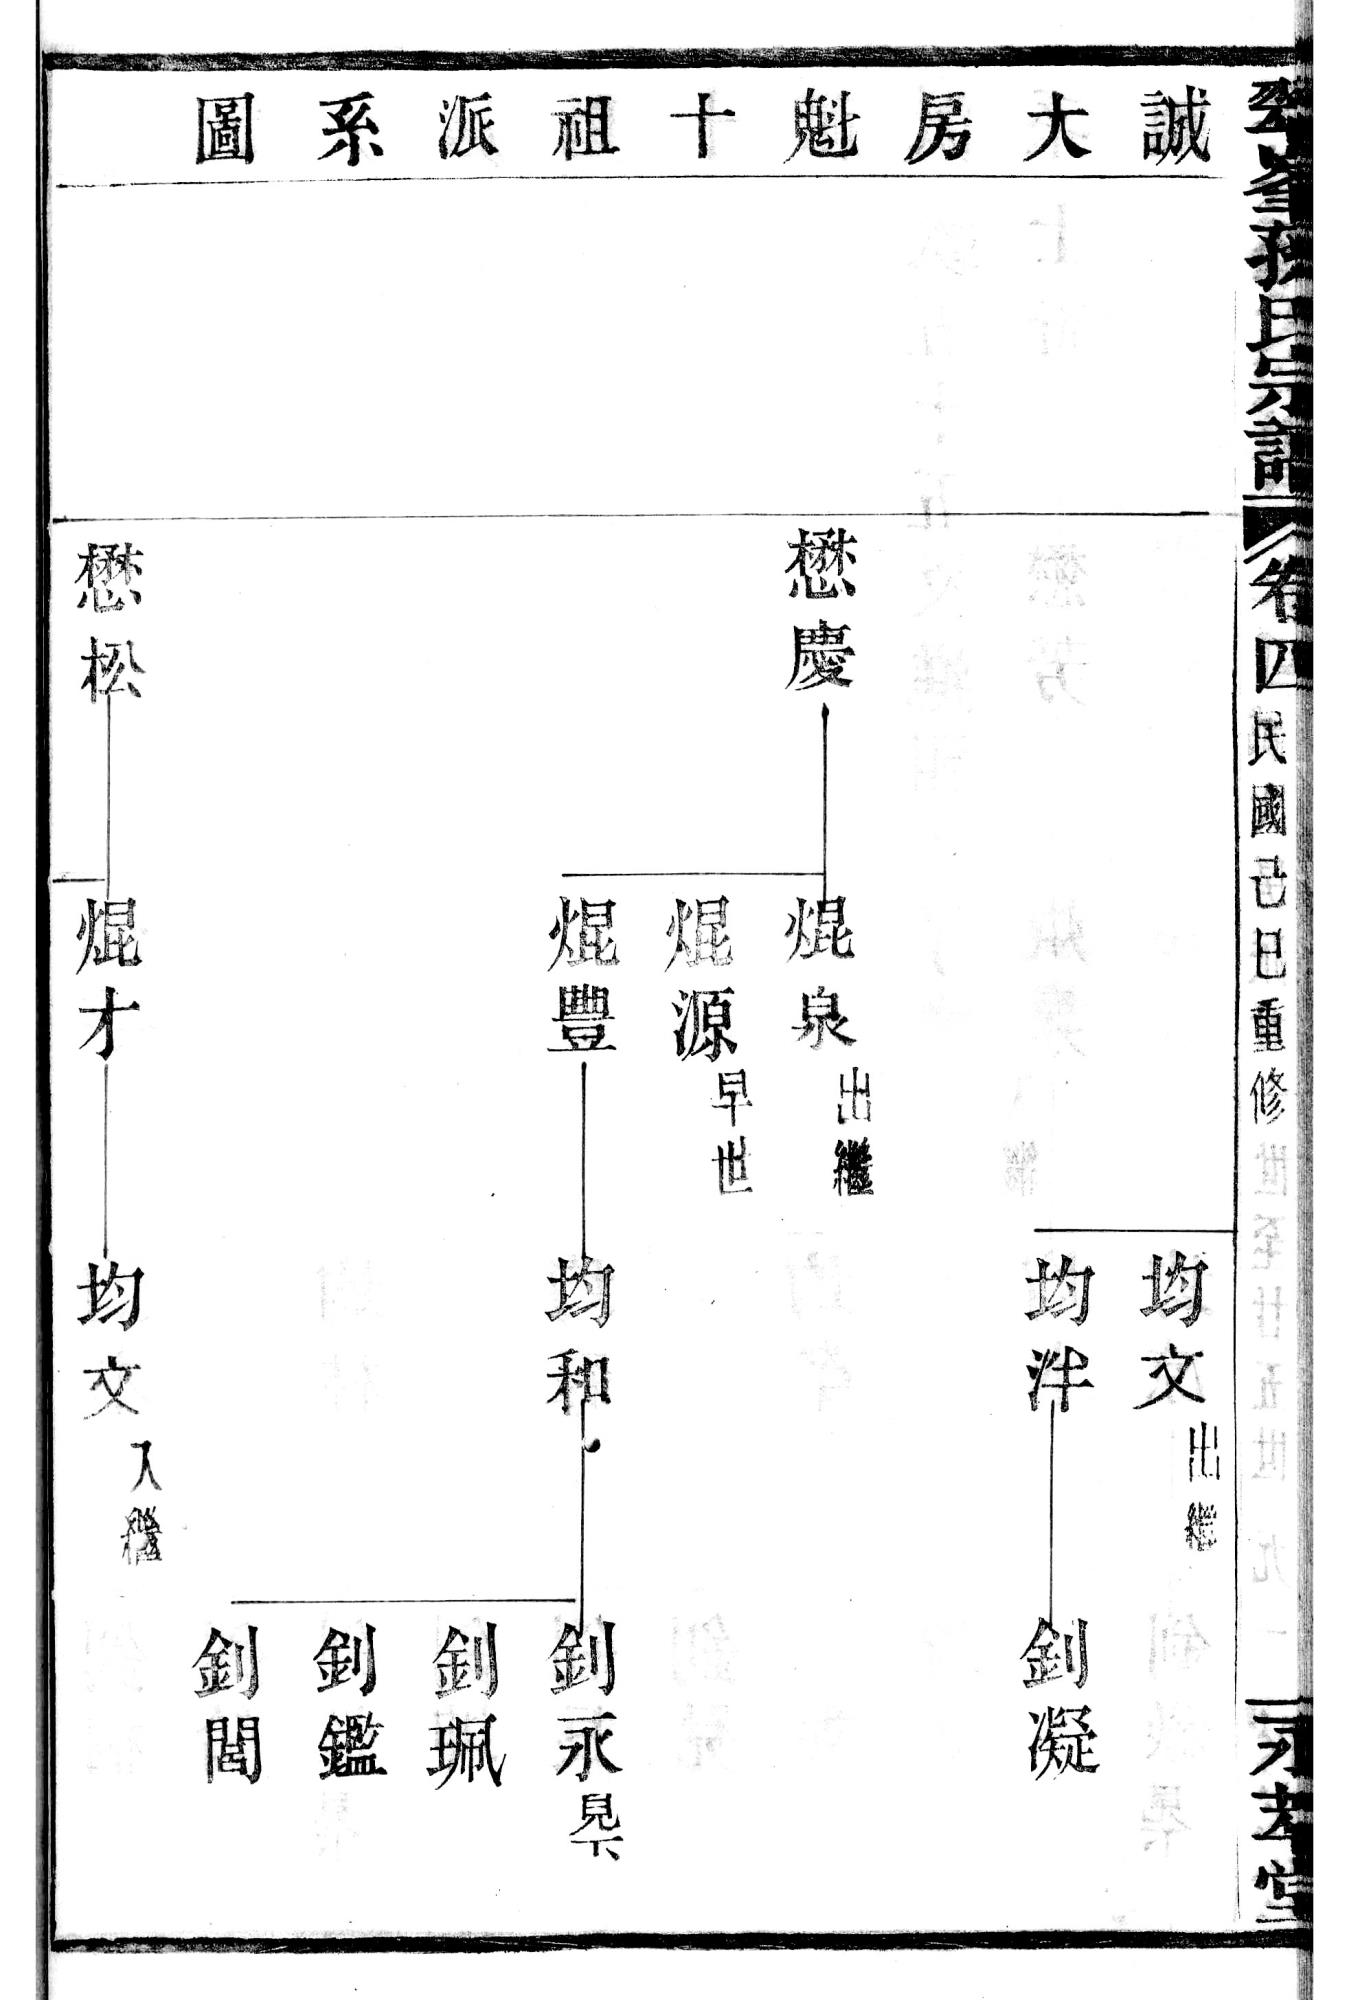 誠大房魁十祖派系圖
懋慶
懋松
焜泉出繼
焜源早世
焜豐
焜才
均文出繼
均泮
均和
均文入繼
釗凝
釗永見下
釗珮
釗鑑
釗閭
孫氏宗譜
卷四
民國己巳重修
世至廿五世
九一
永孝堂